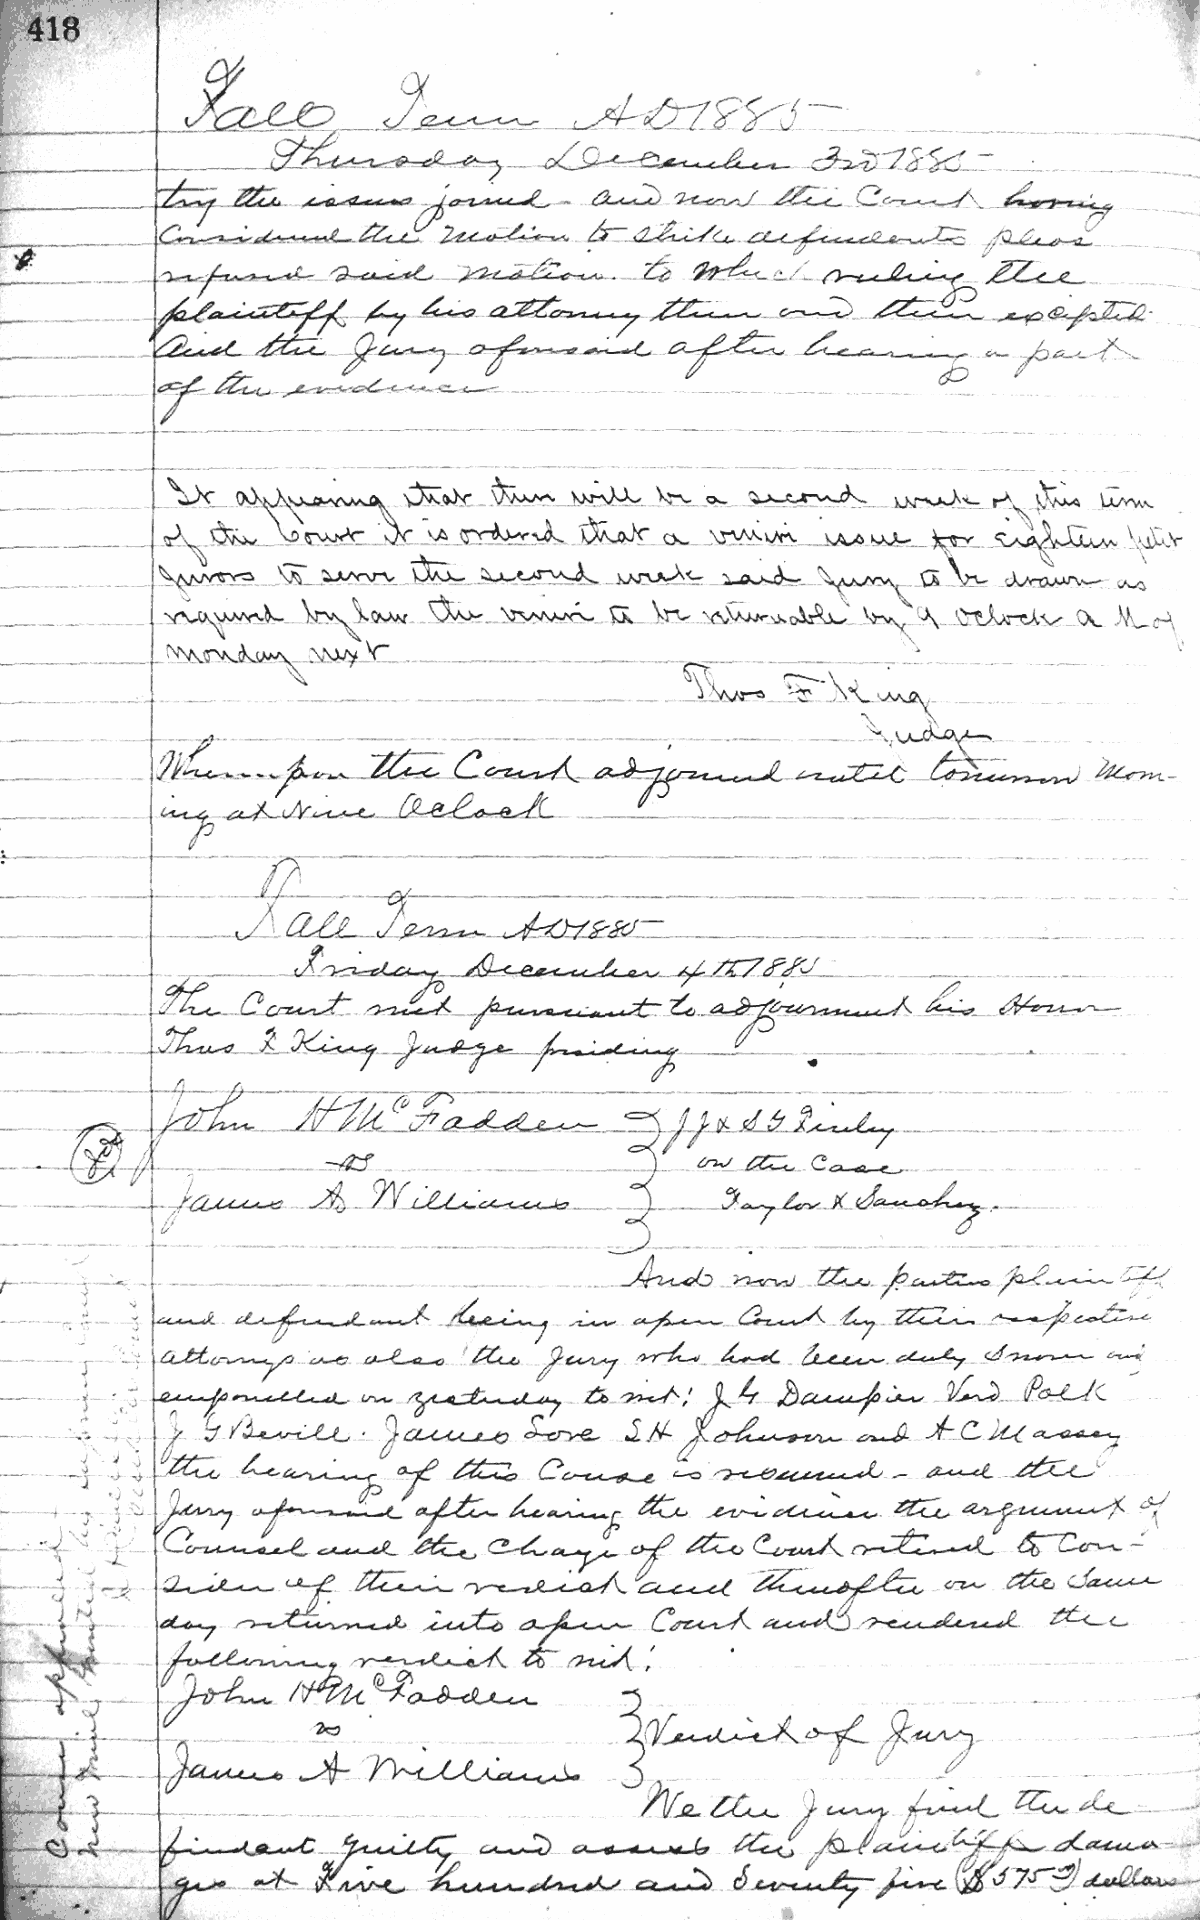 418
Fall Term AD 1885
Thursday December 3rd 1885
try the issues joined - and now the Court having
Considered the Motion to Strike defendants pleas
refused said Motion. to which ruling the
plaintiff by his attorney then and there excepted.
And the Jury aforesaid after hearing a part
of the evidence
It appearing that there will be a second week of this term
of the Court it is ordered that a venire issue for eighteen petit
Jurors to serve the second week said Jury to be drawn as
required by law the venire to be returnable by 9 Oclock A M of
Monday next
Thos F King
Judge
Whereupon the Court adjourned until tomorrow Morn-
ing at Nine Oclock
Fall Term AD 1885
Friday December 4th 1885
The Court met pursuant to adjournment his Honor
Thos F King Judge presiding
John H McFadden } J J & S G Finley
vs } on the Case
James A Williams } Taylor & Sanchez.
And now the parties plaintiff
and defendant being in open Court by their respective
attorneys as also the Jury who had been duly Sworn and
empanelled on yesterday to wit: J G Dampier Verd Polk
J G Bevill. James Love S H Johnson and A C Massey
the hearing of this Cause is resumed - and the
Jury aforesaid after hearing the evidence the argument of
Counsel and the Charge of the Court retired to Con-
sider of their verdict and thereafter on the Same
day returned into open Court and rendered the
following verdict to wit:
John H McFadden }
vs } Verdict of Jury
James A Williams }
We the Jury find the de
fendant guilty and assess the plaintiffs dama
ges at Five hundred and Seventy five ($575) dollars
new trial granted by